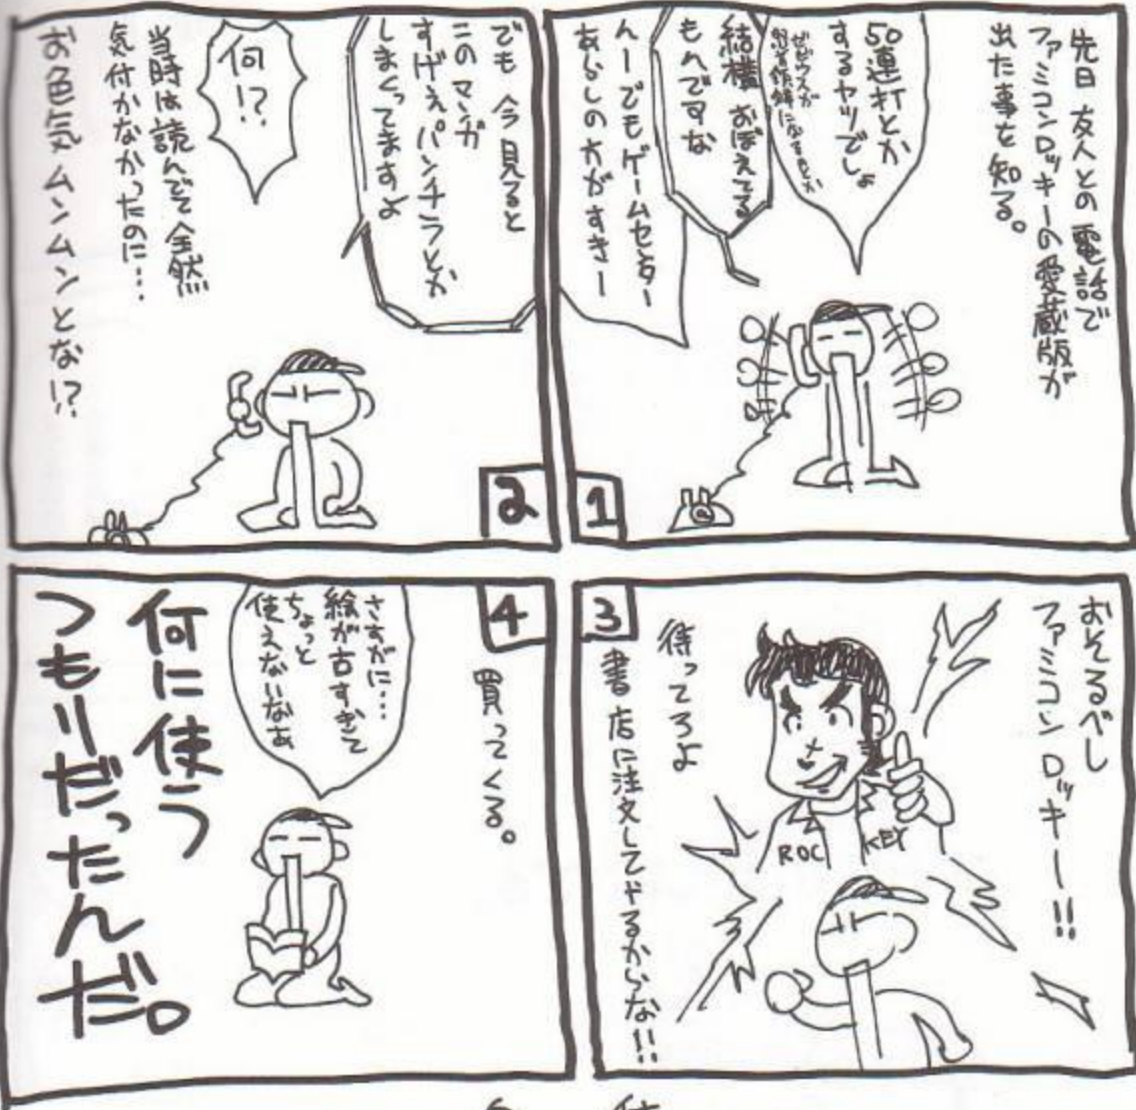 先日 友人との電話で
ファミコンロッキーの愛蔵版が
出た事を知る。
50連打とか
するヤツでしょ
ゼビウスが
結構 おぼえてる
もんですな
んーでもゲームセンター
あらしの方がすきー
1
でも 今見ると
このマンガ
すげぇパンチラとか
しまくってますよ
何!?
当時は読んでて全然
気付かなかったのに…
お色気ムンムンとな!?
2
おそるべし
ファミコンロッキー!!
ROC
KEY
待ってろよ
書店に注文してやるからな!!
3
4
買ってくる。
さすがに…
絵が古すぎて
ちょっと
使えないなあ
何に使う
つもりだったんだ。